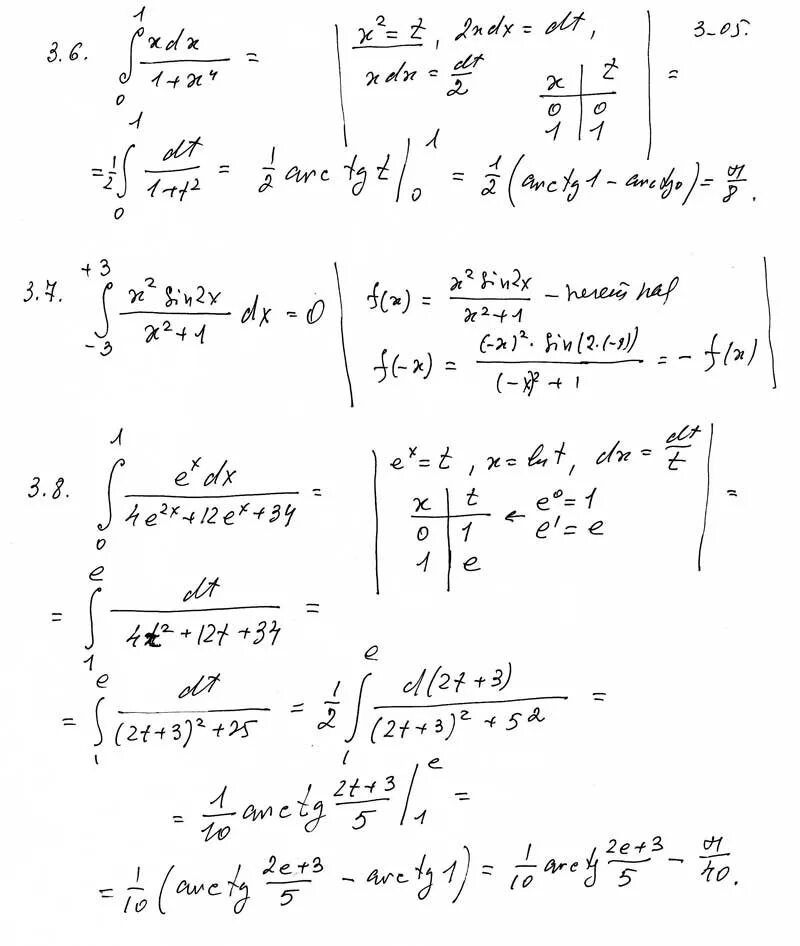 3.6. ∫₀¹ xdx/(1+x⁴) = | x² = t, 2xdx = dt, xdx = dt/2 | x | t ; 0 | 0 ; 1 | 1 | = 3-05.
= 1/2 ∫₀¹ dt/(1+t²) = 1/2 arctg t |₀¹ = 1/2 (arctg 1 - arctg 0) = π/8.
3.7. ∫₋₃⁺³ (x² sin2x)/(x²+1) dx = 0 | f(x) = (x² sin2x)/(x²+1) -
f(-x) = ((-x)² · sin(2·(-x)))/((-x)² + 1) = - f(x) |
3.8. ∫₀¹ eˣdx/(4e²ˣ+12eˣ+34) = | eˣ = t, x = ln t, dx = dt/t | =
x | t
0 | 1 ← e⁰ = 1
1 | e e¹ = e
= ∫₁ᵉ dt/(4t²+12t+34) =
= ∫₁ᵉ dt/((2t+3)²+25) = 1/2 ∫₁ᵉ d(2t+3)/((2t+3)²+5²) =
= 1/10 arctg (2t+3)/5 |₁ᵉ =
= 1/10 (arctg (2e+3)/5 - arctg 1) = 1/10 arctg (2e+3)/5 - π/40.